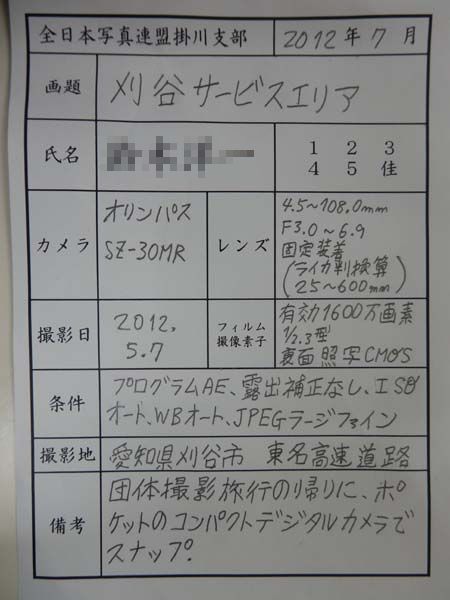 全日本写真連盟掛川支部 2012年7月
画題 刈谷サービスエリア
氏名
1 2 3
4 5 佳
カメラ
オリンパス
SZ-30MR
レンズ
4.5~108.0mm
F3.0~6.9
固定装着
(ライカ判換算
25~600mm)
撮影日
2012.
5.7
フィルム
撮像素子
有効1600万画素
1/2.3型
裏面照写CMOS
条件
プログラムAE、露出補正なし、ISO
オート、WBオート、JPEGラージファイン
撮影地 愛知県刈谷市 東名高速道路
備考
団体撮影旅行の帰りに、ポ
ケットのコンパクトデジタルカメラで
スナップ.